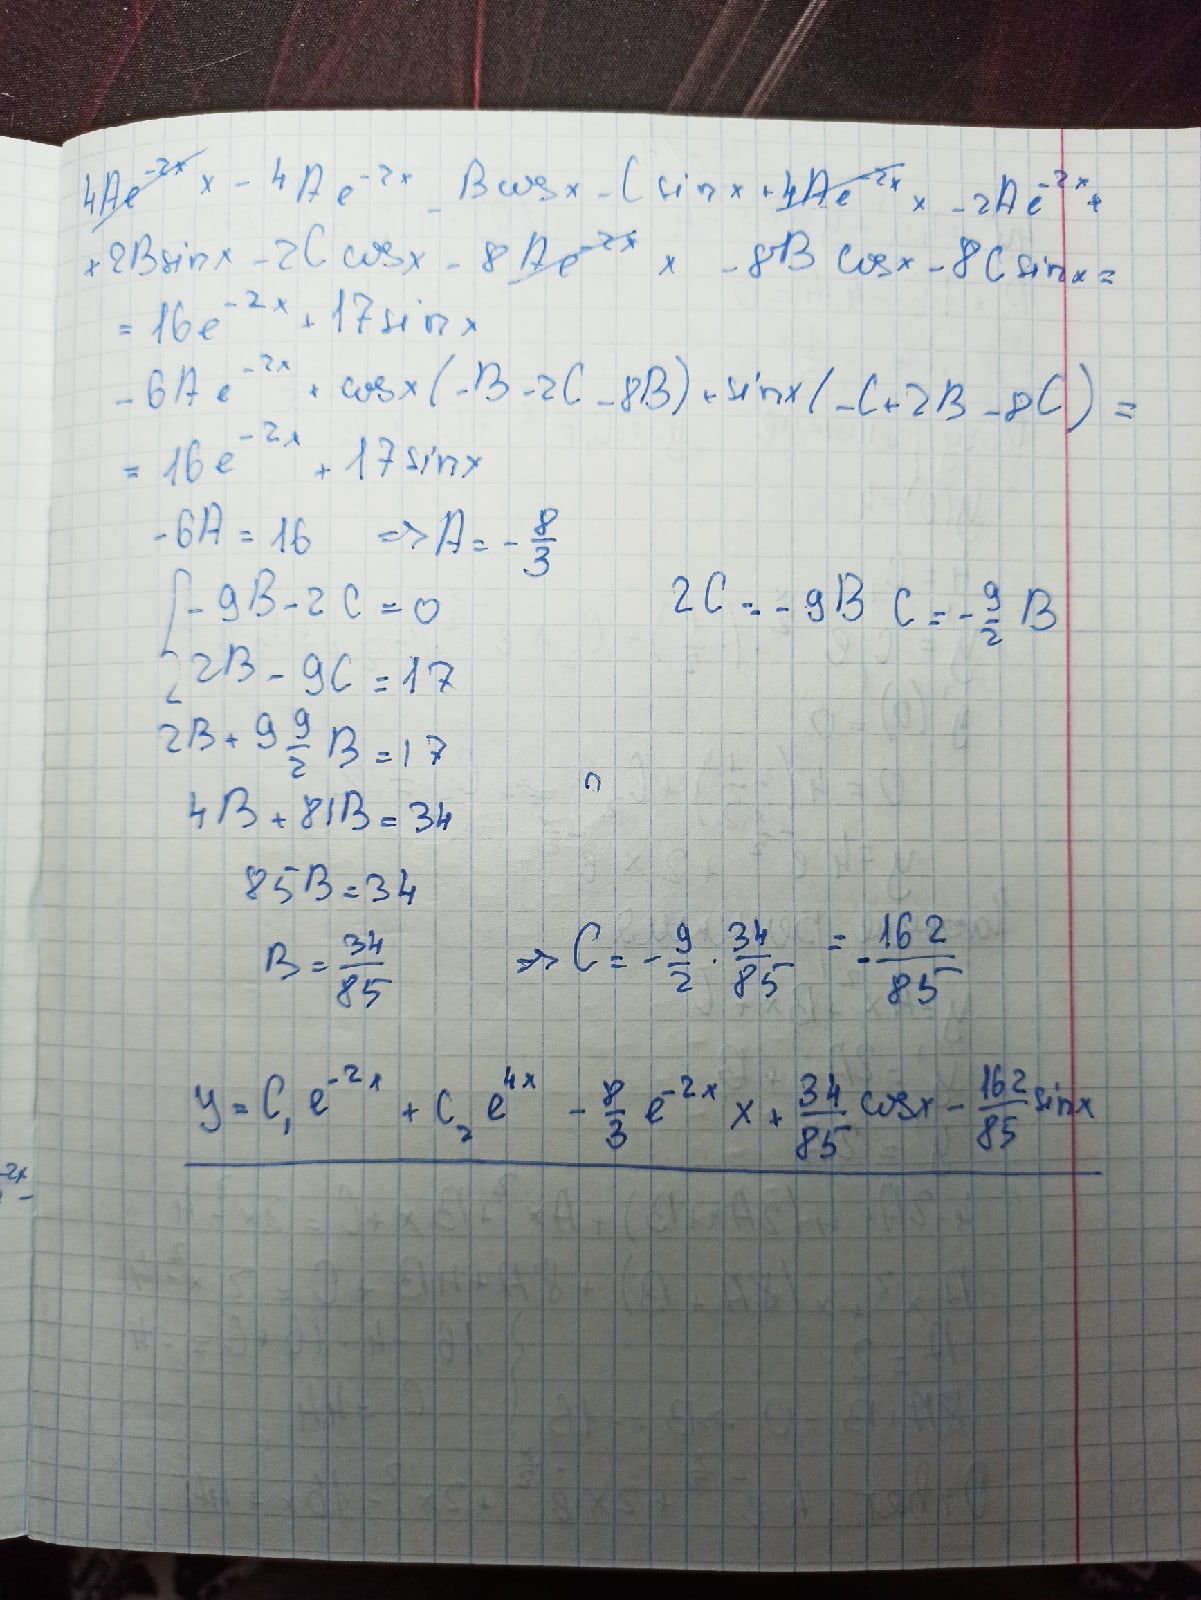 4Ae^{-2x} x - 4Ae^{-2x} - B cos x - C sin x + 4Ae^{-2x} x - 2Ae^{-2x} +
+ 2B sin x - 2C cos x - 8Ae^{-2x} x - 8B cos x - 8C sin x =
= 16e^{-2x} + 17 sin x
- 6Ae^{-2x} + cos x (-B - 2C - 8B) + sin x (-C + 2B - 8C) =
= 16e^{-2x} + 17 sin x
-6A = 16 => A = - 8/3
{ -9B - 2C = 0 2C = -9B C = - 9/2 B
2B - 9C = 17
2B + 9 9/2 B = 17
4B + 81B = 34
85B = 34
B = 34/85 => C = - 9/2 · 34/85 = - 162/85
y = C₁ e^{-2x} + C₂ e^{4x} - 8/3 e^{-2x} x + 34/85 cos x - 162/85 sin x